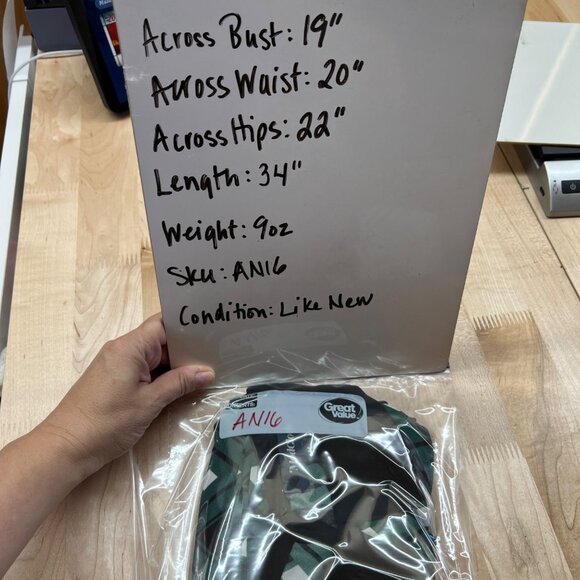 Across Bust: 19"
Across Waist: 20"
Across Hips: 22"
Length: 34"
Weight: 9oz
Sku: AN16
Condition: Like New
AN16
Great Value